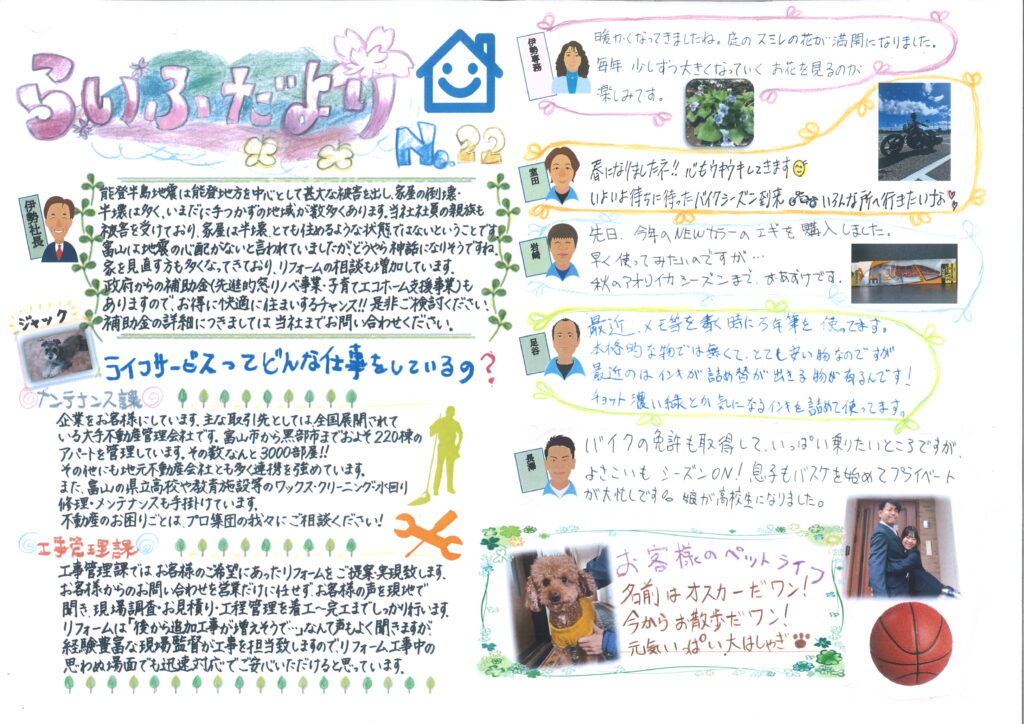 らいふだより
No.22
伊勢社長
能登半島地震は能登地方を中心として甚大な被害を出し、家屋の倒壊・
半壊は多く、いまだに手つかずの地域が数多くあります。当社社員の親族も
被害を受けており、家屋は半壊、とても住めるような状態ではないということです。
富山は地震の心配がないと言われていましたが、どうやら神話になりそうですね。
家を見直す方も多くなってきており、リフォームの相談も増加しています。
政府からの補助金(先進的窓リノベ事業・子育てエコホーム支援事業)も
ありますので、お得に快適に住まいするチャンス!!是非ご検討ください。
補助金の詳細につきましては当社までお問い合わせください。
ジャック
ライフサービスってどんな仕事をしているの?
メンテナンス課
企業をお客様にしています。主な取引先としては、全国展開されて
いる大手不動産管理会社です。富山市から黒部市までおよそ220棟の
アパートを管理しています。その数なんと3000部屋!!
その他にも地元不動産会社とも多く連携を強めています。
また、富山の県立高校や教育施設等のワックス・クリーニング・水回り
修理・メンテナンスも手掛けています。
不動産のお困りごとは、プロ集団の我々にご相談ください!
工事管理課
工事管理課では、お客様のご希望にあったリフォームをご提案・実現致します。
お客様からのお問い合わせを営業だけに任せず、お客様の声を現地で
聞き、現場調査・お見積り・工程管理を着工～完工までしっかり行います。
リフォームは「後から追加工事が増えそうで…」なんて声もよく聞きますが、
経験豊富な現場監督が工事を担当致しますのでリフォーム工事中の
思わぬ場面でも迅速対応でご安心いただけると思っています。
伊勢専務
暖かくなってきましたね。庭のスミレの花が満開になりました。
毎年、少しずつ大きくなっていくお花を見るのが
楽しみです。
室田
春になりましたネ!!心もウキウキしてきます
いよいよ待ちに待ったバイクシーズン到来 いろんな所へ行きたいなぁ
岩崎
先日、今年のNEWカラーのエギを購入しました。
早く使ってみたいのですが…
秋のアオリイカシーズンまで、おあずけです。
足谷
最近、メモ等を書く時に万年筆を使ってます。
本格的な物では無くて、とても安い物なのですが
最近のはインキが詰め替が出来る物が有るんです!
チョット濃い緑とか気になるインキを詰めて使ってます。
長澤
バイクの免許も取得して、いっぱい乗りたいところですが、
よさこいもシーズンON!息子もバスケを始めてプライベート
が大忙しです。娘が高校生になりました。
お客様のペットライフ
名前はオスカーだワン!
今からお散歩だワン!
元気いっぱい、大はしゃぎ